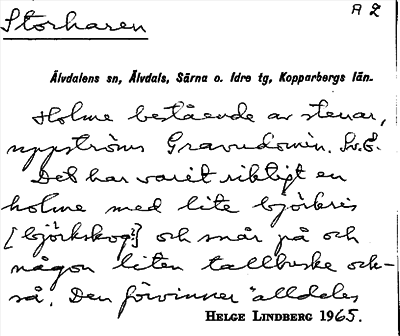 Storharen
A 2
Älvdalens sn, Älvdals, Särna o. Idre tg, Kopparbergs län.
Holme bestående av stenar,
uppströms Gravudomin. Sv.E.
Det har varit riktigt en
holme med lite björkris
[björkskog?] och snår på och
någon liten tallbuske ock-
så. Den försvinner "alldeles
HELGE LINDBERG 1965.